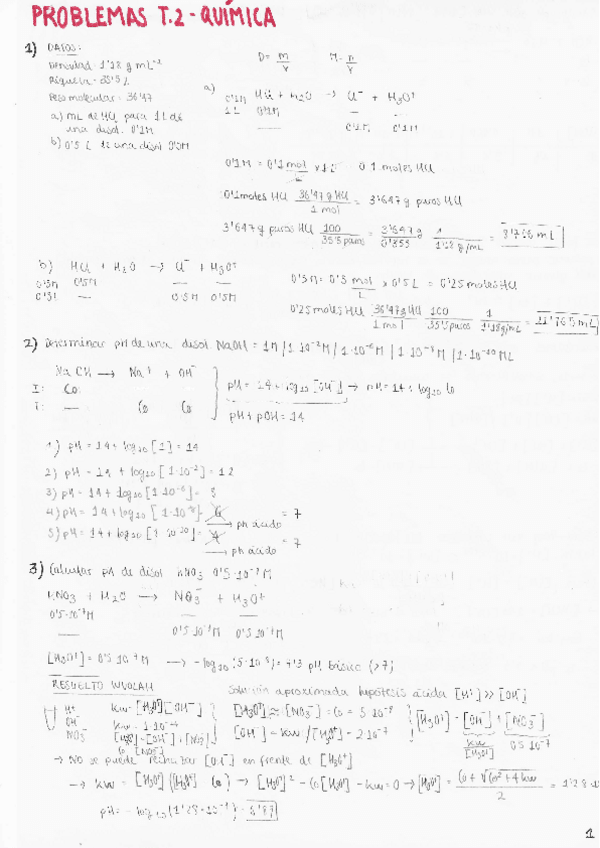 PROBLEMAS T.2 - QUÍMICA
1) DATOS:
Densidad: 1'18 g mL⁻¹
Riqueza = 35'5 %
Peso molecular = 36'47
a) mL de HCl para 1 L de
una disol. 0'1M
b) 0'5 L de una disol 0'5M
D = m/V M = n/V
a) HCl + H₂O → Cl⁻ + H₃O⁺
0'1M 0'1M
1 L
0'1M 0'1M
0'1M = 0'1 mol/L x 1L = 0'1 moles HCl
0'1 moles HCl 36'47 g HCl / 1 mol = 3'647 g puros HCl
3'647 g puros HCl 100 / 35'5 puros = 3'647 g / 0'355 1 / 1'18 g/mL =
b) HCl + H₂O → Cl⁻ + H₃O⁺
0'5M 0'5M — —
0'5L — 0'5M 0'5M
0'5M = 0'5 mol/L x 0'5 L = 0'25 moles HCl
0'25 moles HCl 36'47 g HCl / 1 mol 100 / 35'5 puros 1 / 1'18 g/mL =
2) Determinar pH de una disol NaOH = 1M / 1·10⁻²M /
NaOH → Na⁺ + OH⁻
I: Co
F: — Co Co
pH = 14 + log₁₀ [OH⁻] → pH = 14 + log₁₀ Co
pH + pOH = 14
1) pH = 14 + log₁₀ [1] = 14
2) pH = 14 + log₁₀ [1·10⁻²] = 12
3) pH = 14 + log₁₀ [1·10⁻⁶] = 8
4) pH = 14 + log₁₀ [1·10⁻⁸] = 6 → ph ácido = 7
5) pH = 14 + log₁₀ [1·10⁻¹⁰] = 4 → ph ácido = 7
3) Calcular pH de disol HNO₃ 0'5·10⁻⁷M
HNO₃ + H₂O → NO₃⁻ + H₃O⁺
0'5·10⁻⁷M — —
— 0'5·10⁻⁷M 0'5·10⁻⁷M
[H₃O⁺] = 0'5·10⁻⁷M → -log₁₀ (5·10⁻⁸) = 7'3 pH básico (>7)
RESUELTO
Solución aproximada hipótesis ácida [H⁺] >> [OH⁻]
H⁺
OH⁻
NO₃⁻
Kw = [H₃O⁺][OH⁻]
[H₃O⁺] = [OH⁻] + [NO₃⁻]
Co = [NO₃⁻]
[H₃O⁺] ≈ [NO₃⁻] = Co = 5·10⁻⁸
[OH⁻] = Kw / [H₃O⁺] = 2·10⁻⁷
[H₃O⁺] = [OH⁻] + [NO₃⁻]
Kw / [H₃O⁺] 0'5·10⁻⁷
→ No se puede rechazar [OH⁻] en frente de [H₃O⁺]
→ Kw = [H₃O⁺] ([H₃O⁺] - Co) → [H₃O⁺]² - Co[H₃O⁺] - Kw = 0 → [H₃O⁺] = Co + √(Co² + 4Kw) / 2 =
pH = - log₁₀
1